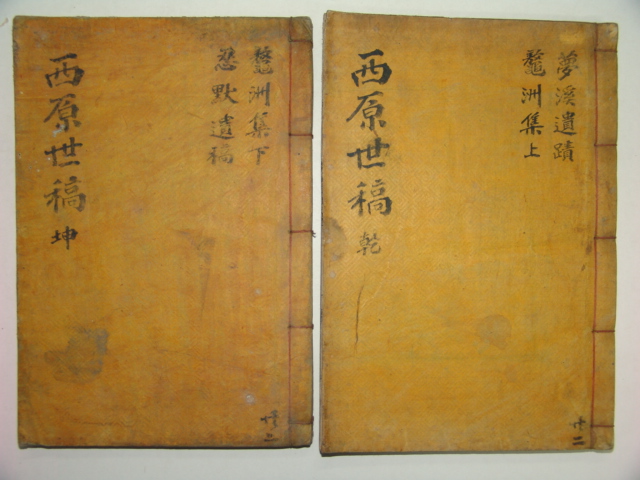 夢溪遺蹟
鼇洲集上
西原世稿 乾
共二
鼇洲集下
忍默遺稿
西原世稿 坤
共二